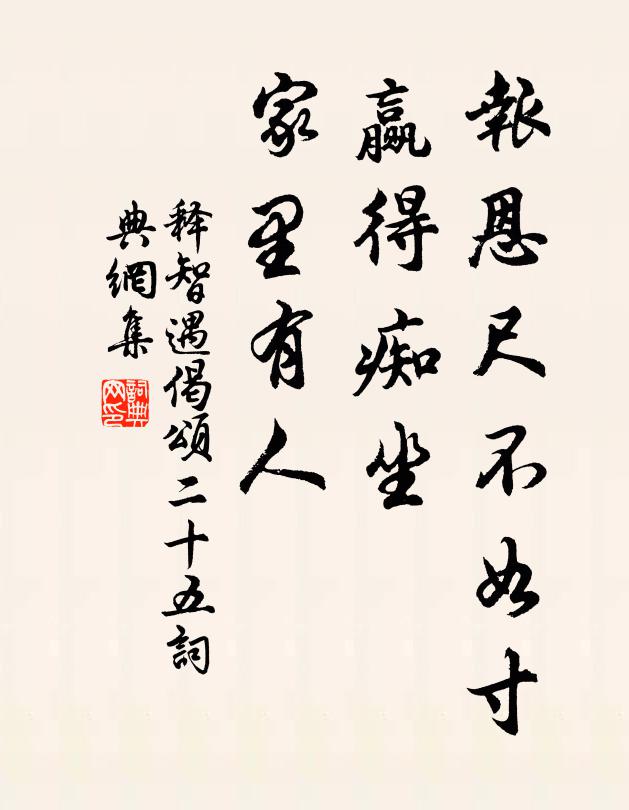 報恩尺不如寸
贏得痴坐
家里有人
释智遇偈頌二十五詞
典網集
詞典网印